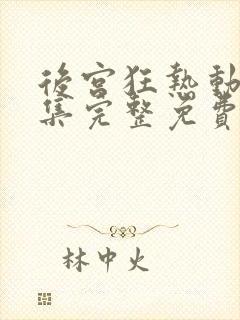 後宮狂熱動
集完整免費
林中火